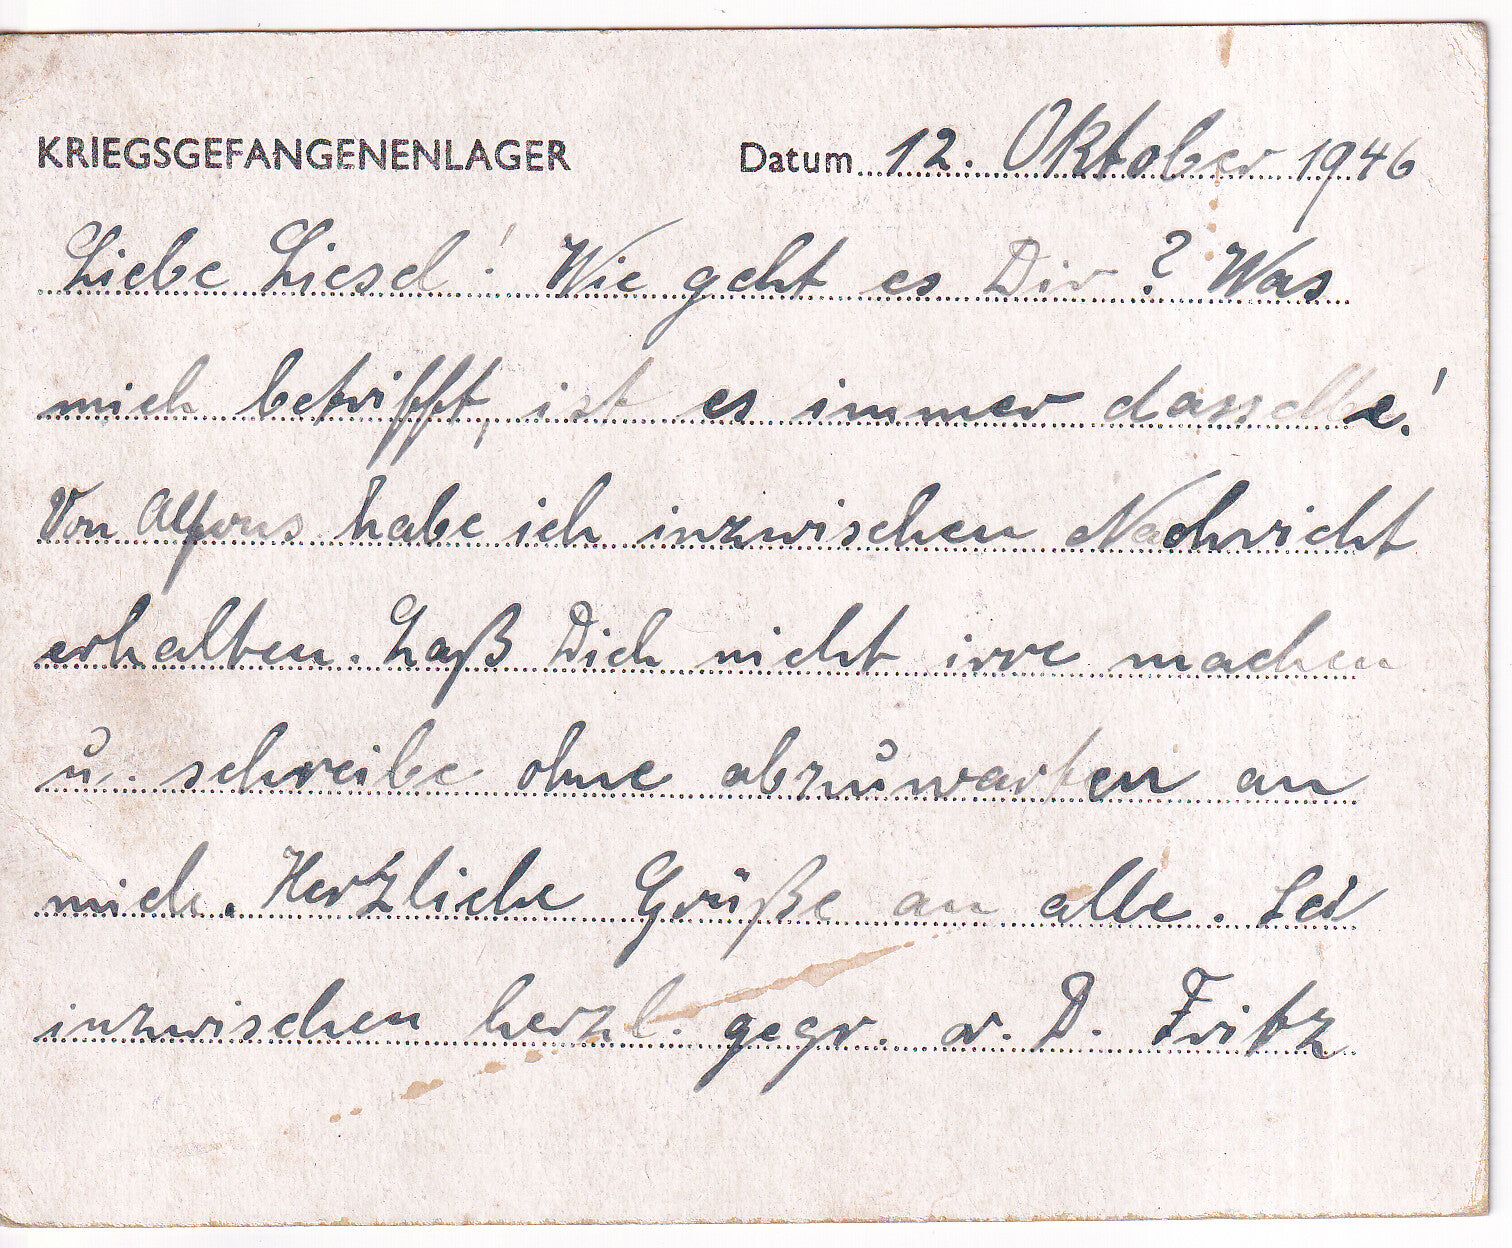 KRIEGSGEFANGENENLAGER Datum 12. Oktober 1946
Liebe Liesel! Wie geht es Dir? Was
mich betrifft, ist es immer dasselbe!
Von Alfons habe ich inzwischen Nachricht
erhalten. Laß Dich nicht irre machen
u. schreibe ohne abzuwarten an
mich. Herzliche Grüße an alle. Sei
inzwischen herzl. gegr. v. D. Fritz